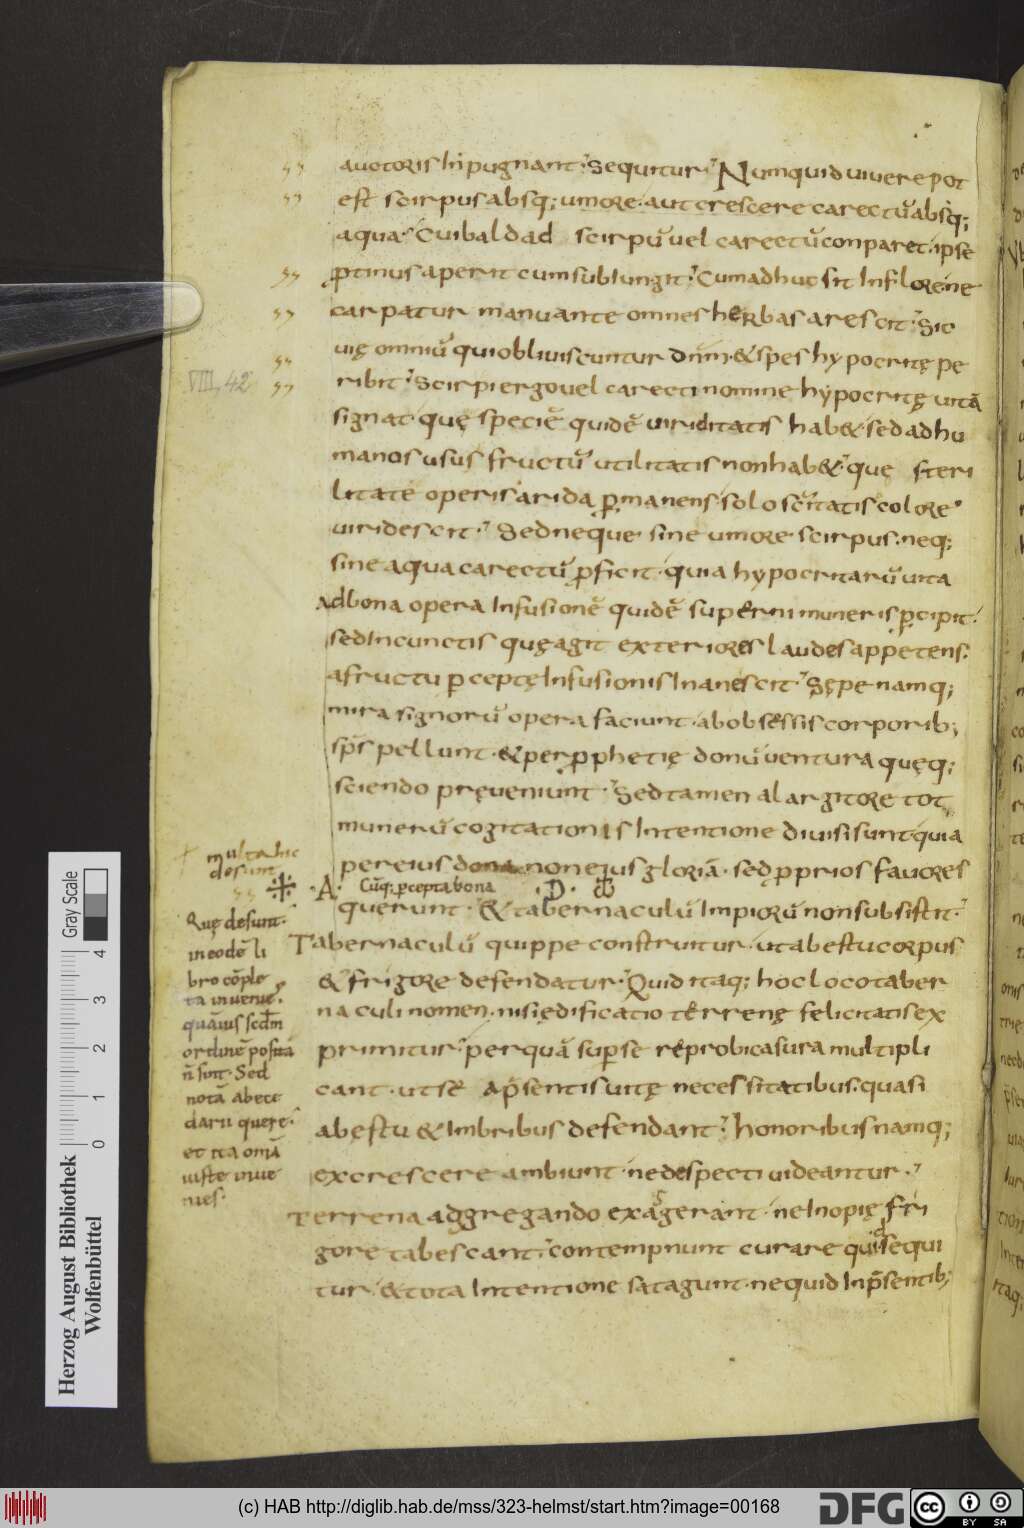 auctoris hi pugnant. Sequitur. Numquid uiuere pot
est scirpus absq; umore. aut crescere carectū absq;
aqua. Cui baldad scirpū uel carectū conparet. ipse
ꝓtinus aperit cum subiungit. Cum adhuc sit In flore ne
carpatur manu ante omnes herbas arescit. Sic
uię omniū qui obliuiscuntur dnm̄. & spes hypocritę pe
ribit. Scirpi ergo uel carecti nomine hypocritę uitā
signat. quę speciē quidē uiriditatis hab& sed ad hu
manos usus fructū utilitatis non hab&. quę steri
litate operis arida ꝑmanens. solo scītatis colore
uiridescit. Sed neque sine umore scirpus. neq;
sine aqua carectū ꝓficit. quia hypocritarū uita
Ad bona opera Infusionē quidē superni muneris ꝑcipit.
sed In cunctis quę agit exteriores laudes appetens.
a fructu ꝑceptę Infusionis Inanescit. Sępe namq;
mira signorū opera faciunt. ab obsessis corporib;
sps̄ pellunt. & per ꝓphetię donū uentura quęq;
sciendo pręueniunt. Sed tamen a largitore tot
munerū cogitationis Intentione diuisi sunt. quia
per eius dona non eius gloriā. sed ꝓprios fauores
·A· Cūq; ꝑcepta bona ·D·
querunt. & tabernaculū Impiorū non subsistit.
Tabernaculū quippe construitur. ut ab estu corpus
& frigore defendatur. Quid itaq; hoc loco taber
naculi nomen. nisi ędificatio terrenę felicitatis ex
primitur. per quā super se reprobi casura multipli
cant. ut se a p̄sentis uitę necessitatibus. quasi
ab ęstu & Imbribus defendant. honoribus namq;
excrescere ambiunt. ne despecti uideantur.
Terrena adgregando exaggerant. ne Inopię fri
gore tabescant. contempnunt curare quid sequi
tur. & tota Intentione satagunt. ne quid In p̄sentib;
VIII, 42
multa hic
desunt
Quę desunt.
in eodē li
bro cōple
ta inuenies.
quāuis scdm̄
ordinē posita
n̄ sint. Sed
notā abece
darii quere.
et ita omā
iuste inue
nies.
Herzog August Bibliothek
Wolfenbüttel
Gray Scale
0 1 2 3 4
(c) HAB http://diglib.hab.de/mss/323-helmst/start.htm?image=00168
DFG
cc BY SA